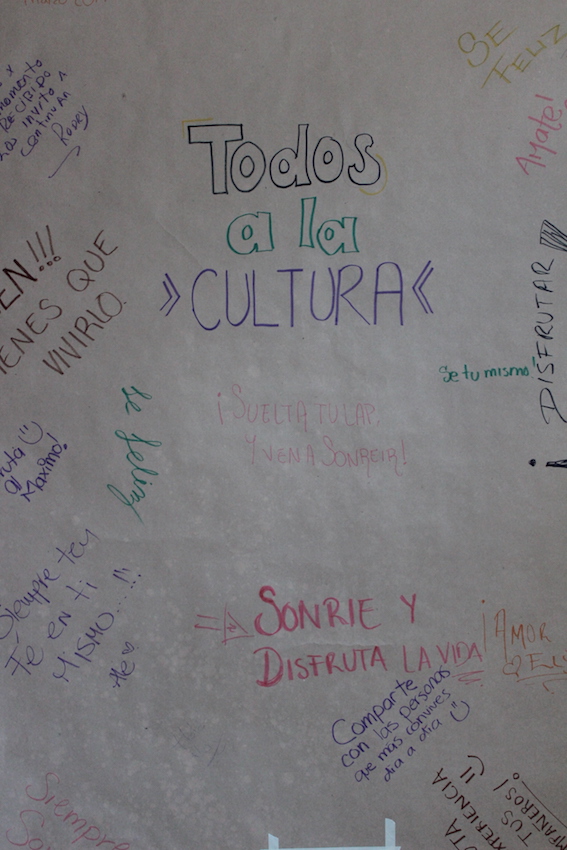 SE
FELIZ
Amate!
momento
RECIBIDO
invito A
continuar
Rodey
Todos
a la
CULTURA
EN!!!
IENES QUE
VIVIRLO.
¡DISFRUTAR
Se tu mismo!
Se feliz
¡SUELTA TU LAP.
Y VEN A SONREIR!
Maximo!
Siempre ten
Fe en ti
MISMO...!!!
Ale
SONRIE Y
DISFRUTA LA VIDA
¡AMOR
Comparte
con las personas
que más convives
dia a dia
Siempre
TUS
EXPERIENCIA